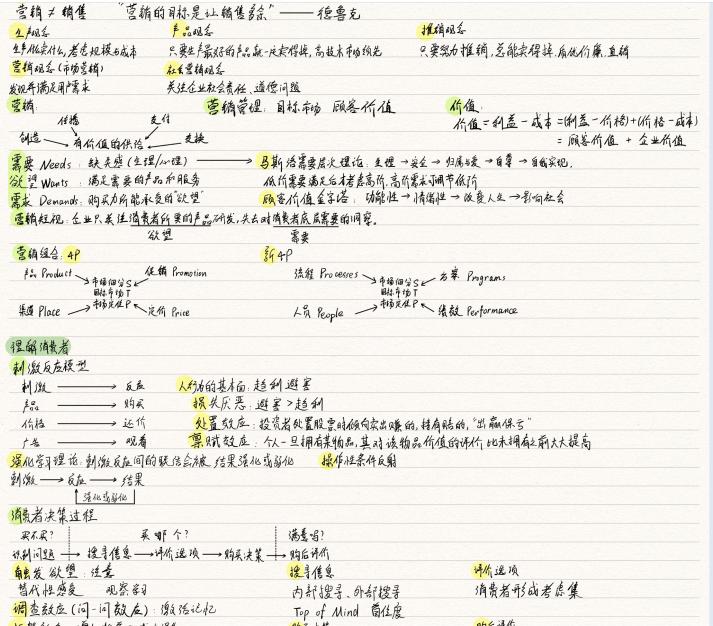 营销 ≠ 销售 "营销的目标是让销售多余" —— 德鲁克
生产观念 产品观念 推销观念
生产低卖什么,考虑规模与成本 只要生产最好的产品就一定卖得掉,高技术市场领先 只要努力推销,总能卖得掉,质优价廉,直销
营销观念(市场营销) 社会营销观念
发现并满足用户需求 关注企业社会责任、道德问题
营销: 营销管理:目标市场 顾客价值 价值:
传播 支付 价值=利益-成本=(利益-价格)+(价格-成本)
创造 → 有价值的供给 ← 交换 = 顾客价值 + 企业价值
需要 Needs:缺失感(生理/心理) → 马斯洛需要层次理论:生理→安全→归属与爱→自尊→自我实现.
欲望 Wants:满足需要的产品和服务 低阶需要满足后才考虑高阶,高阶需求可调节低阶
需求 Demands:购买力所能承受的"欲望" 顾客价值金字塔:功能性→情绪性→改变人生→影响社会
营销短视:企业只关注消费者所要的产品研发,失去对消费者底层需要的洞察。
欲望 需要
营销组合:4P 新4P
产品 Product 促销 Promotion 流程 Processes 方案 Programs
市场细分S 市场细分S
目标市场T 目标市场T
渠道 Place 市场定位P 定价 Price 人员 People 市场定位P 绩效 Performance
理解消费者
刺激反应模型
刺激 → 反应 人行为的基本面:趋利避害
产品 → 购买 损失厌恶:避害>趋利
价格 → 还价 处置效应:投资者处置股票时倾向卖出赚的,持有赔的,"出赢保亏"
广告 → 观看 禀赋效应:个人一旦拥有某物品,其对该物品价值的评价比未拥有之前大大提高
强化学习理论:刺激反应间的联结会被结果强化或弱化 操作性条件反射
刺激 → 反应 → 结果
强化或弱化
消费者决策过程
买不买? 买哪个? 满意吗?
识别问题 → 搜寻信息 → 评价选项 → 购买决策 → 购后评价
触发欲望:注意 搜寻信息 评价选项
替代性感受 观察学习 内部搜寻、外部搜寻 消费者形成考虑集
调查效应(问-问效应):激活记忆 Top of Mind 首位度